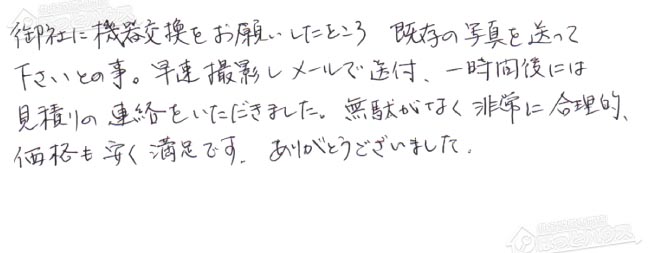 御社に機器交換をお願いしたところ 既存の写真を送って
下さいとの事。早速撮影しメールで送付、一時間後には
見積りの連絡をいただきました。無駄がなく非常に合理的、
価格も安く満足です。ありがとうございました。